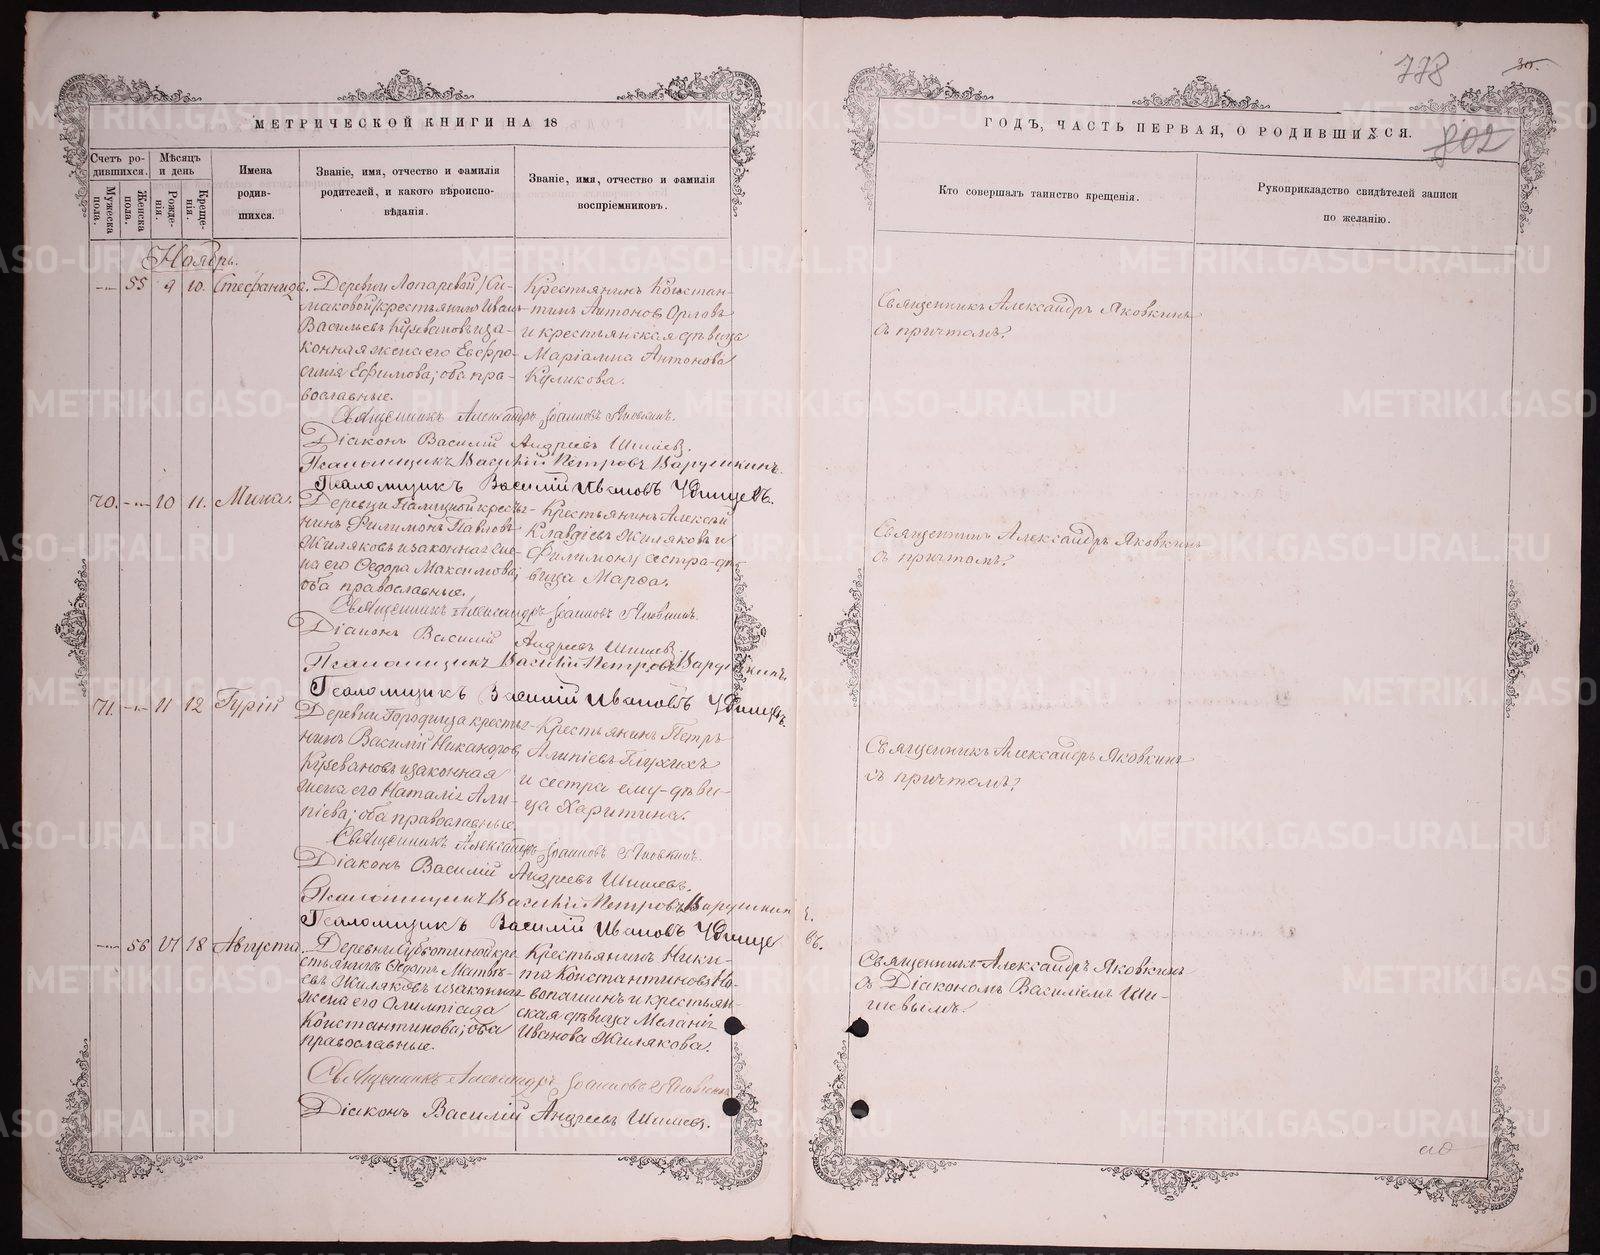 778
30.
802
МЕТРИЧЕСКОЙ КНИГИ НА 18
ГОДЪ, ЧАСТЬ ПЕРВАЯ, О РОДИВШИХСЯ.
Счетъ ро-
дившихся.
Мужеска
пола.
Женска
пола.
Мѣсяцъ
и день
Рожде-
нія.
Креще-
нія.
Имена
родив-
шихся.
Званіе, имя, отчество и фамилія
родителей, и какого вѣроиспо-
вѣданія.
Званіе, имя, отчество и фамилія
воспріемниковъ.
Кто совершалъ таинство крещенія.
Рукоприкладство свидѣтелей записи
по желанію.
Ноябрь.
55 9 10. Стефанида.
Деревни Лопаревой
крестьянинъ Иванъ
Васильевъ и за-
конная жена его Евфро-
синія Ефимова; оба пра-
вославные.
Крестьянинъ Констан-
тинъ Антоновъ Орловъ
и крестьянская дѣвица
Маріамна Антонова
Куликова.
Священникъ Александръ Яковкинъ
съ причтомъ.
Священникъ Александръ Іоанновъ Яковкинъ.
Діаконъ Василій Андреевъ Шишевъ.
Псаломщикъ Василій Петровъ Варушкинъ.
Псаломщикъ Василій Ивановъ Удинцевъ.
70. 10 11. Мина.
Деревни кресть-
янинъ Филимонъ Павловъ
Жиляковъ и законная же-
на его Ѳедора Максимова;
оба православные.
Крестьянинъ Алексѣй
Клавдіевъ Жиляковъ и
Филимону сестра дѣ-
вица Марѳа.
Священникъ Александръ Яковкинъ
съ причтомъ.
Священникъ Александръ Іоанновъ Яковкинъ.
Діаконъ Василій Андреевъ Шишевъ.
Псаломщикъ Василій Петровъ Варушкинъ.
Псаломщикъ Василій Ивановъ Удинцевъ.
71. 11 12 Гурій
Деревни Городища кресть-
янинъ Василій Никандровъ
и законная
жена его Наталія Али-
піева; оба православные.
Крестьянинъ Петръ
Алипіевъ Глухихъ
и сестра ему-дѣви-
ца Харитина.
Священникъ Александръ Яковкинъ
съ причтомъ.
Священникъ Александръ Іоанновъ Яковкинъ.
Діаконъ Василій Андреевъ Шишевъ.
Псаломщикъ Василій Петровъ Варушкинъ.
Псаломщикъ Василій Ивановъ Удинцевъ.
56 17 18 Августа.
Деревни Субботиной кре-
стьянинъ Ѳедотъ Матвѣ-
евъ Жиляковъ и законная
жена его Олимпіада
Константинова; оба
православные.
Крестьянинъ Ники-
та Константиновъ Но-
вопашинъ и крестьян-
ская дѣвица Меланія
Иванова Жилякова.
Священникъ Александръ Яковкинъ
съ Діакономъ Василіемъ Ши-
шевымъ.
Священникъ Александръ Іоанновъ Яковкинъ
Діаконъ Василій Андреевъ Шишевъ.
METRIKI.GASO-URAL.RU